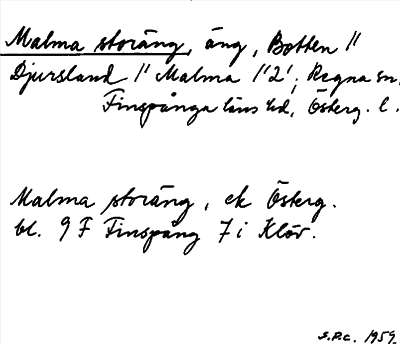 Malma storäng, äng, Botten //
Djursland // Malma 1'2'; Regna sn,
Finspånga läns hd, Österg. l.
Malma storäng, ek Österg.
bl. 9 F Finspång 7 i Klöv.
S.P.C. 1959.